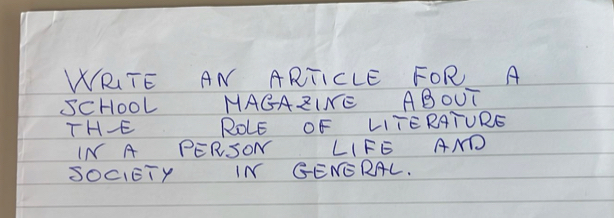 WRITE AN ARTICLE FOR A
SCHOOL MAGAZINE ABOUT
THE ROLE OF LITERATURE
IN A PERSON LIFE AND
SOCIETY IN GENERAL.